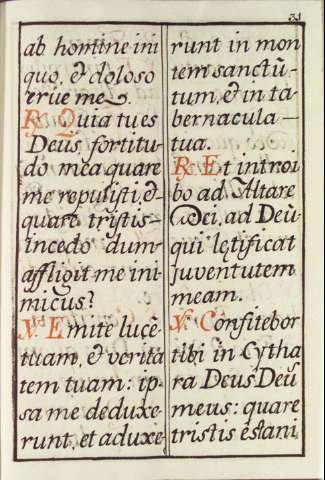 31
ab homine ini
quo, & doloso
erue me.
R. Quia tu es
Deus fortitu-
do mea quare
me repulisti, &
quare tristis
incedo dum
affligit me ini
micus?
V. Emite lucē
tuam, & verita
tem tuam: ip-
sa me deduxe-
runt, et aduxe
runt in mon
tem sanctū-
tum, & in ta-
bernacula
tua.
R. Et introi
bo ad Altare
Dei, ad Deū
qui lętificat
juventutem
meam.
V. Confitebor
tibi in Cytha
ra Deus Deū
meus: quare
tristis es ani